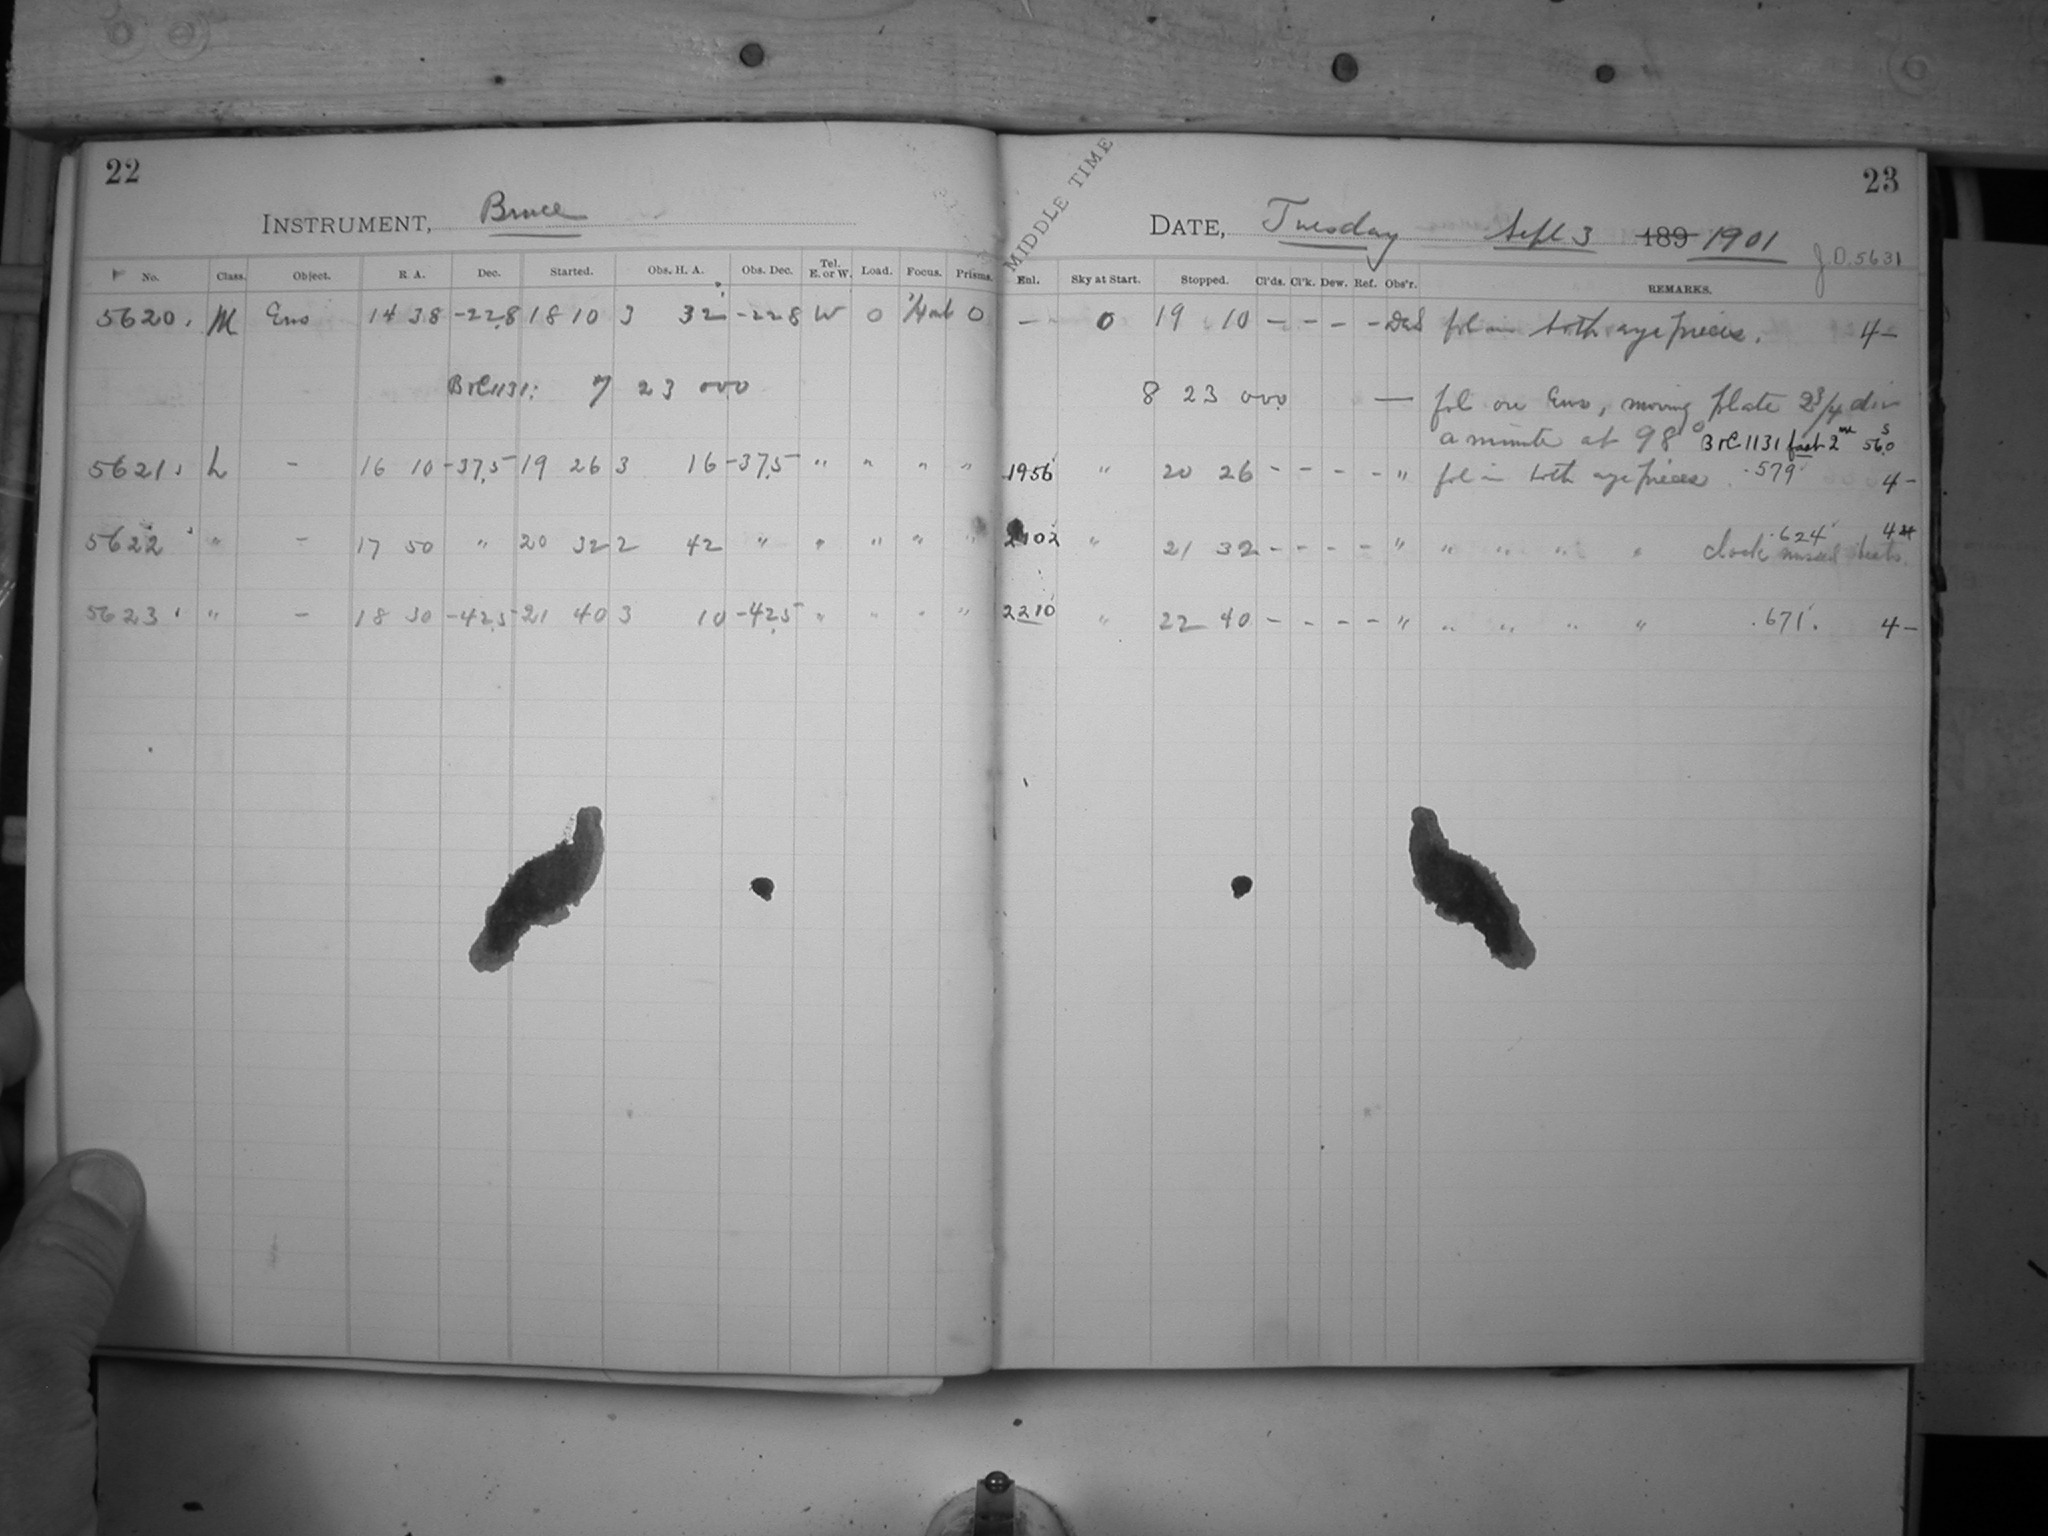 22
INSTRUMENT, Bruce
No. Class. Object. R. A. Dec. Started. Obs. H. A. Obs. Dec. Tel. E. or W. Load. Focus. Prisms.
5620. M Eros 14 38 -22.8 18 10 3 32 -22.8 W 0 0
B&C 1131: 7 23 000
5621. L - 16 10 -37.5 19 26 3 16 -37.5 " " " "
5622 " - 17 50 " 20 32 2 42 " " " " "
5623 " - 18 30 -42.5 21 40 3 10 -42.5 " " " "
MIDDLE TIME
23
DATE, Tuesday Sept 3 189 1901
J.D. 5631
Enl. Sky at Start. Stopped. Cl'ds. Cl'k. Dew. Ref. Obs'r. REMARKS.
- 0 19 10 - - - - fol in both eye pieces. 4-
8 23 000 — fol on Eros, moving plate 2 3/4 div
a minute at 98° B&C 1131 fast 2m 56.0s
1956 " 20 26 - - - - " fol in both eye pieces .579 4-
2102 " 21 32 - - - - " " " " " .624 clock missed beats. 4
2210 " 22 40 - - - - " " " " " .671. 4-